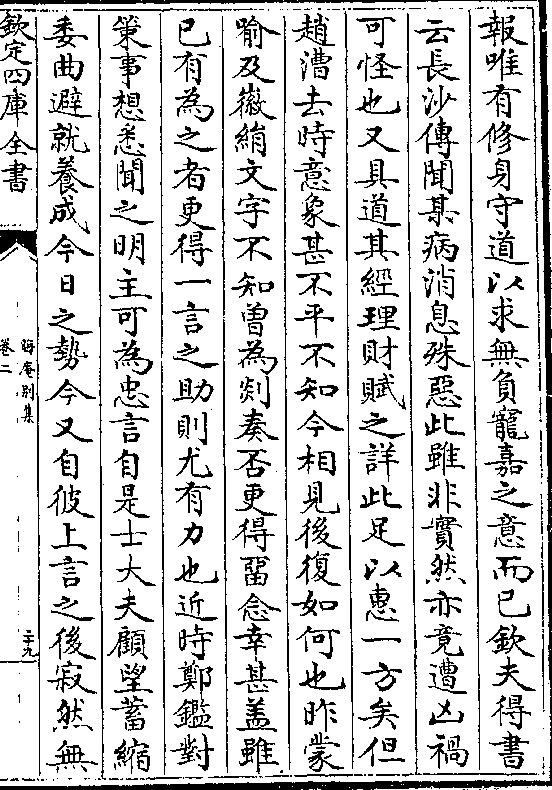 報唯有修身守道以求無負寵嘉之意而已欽夫得書
云長沙傳聞某病消息殊惡此雖非實然亦竟遭凶禍
可怪也又具道其經理財賦之詳此足以惠一方矣但
趙漕去時意象甚不平不知今相見後復如何也昨蒙
喻及徽絹文字不知曽為剡奏否更得留念幸甚盖雖
已有為之者更得一言之助則尤有力也近時鄭鑑對
策事想悉聞之明主可為忠言自是士大夫顧望蓄縮
委曲避就養成今日之勢今又自彼上言之後寂然無
欽定四庫全書
晦菴别集
卷二
二十九